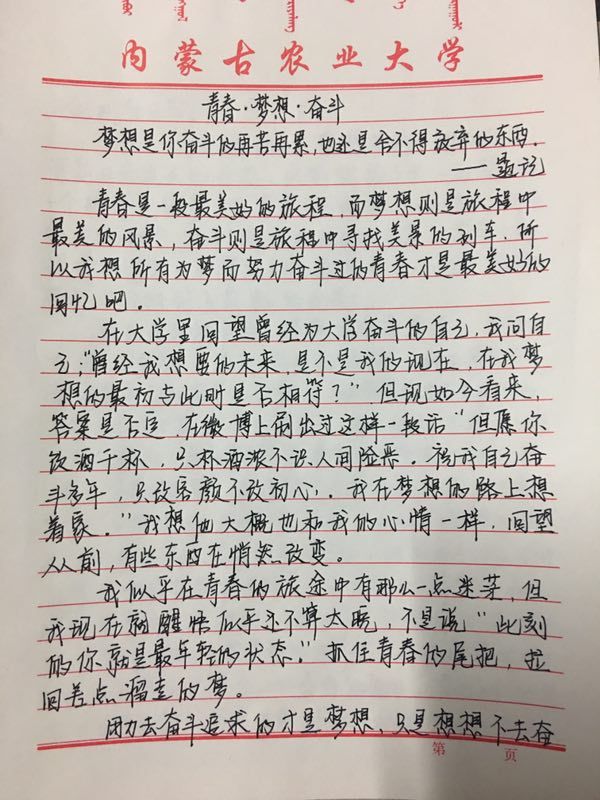 内蒙古农业大学
青春·梦想·奋斗
梦想是你奋斗的再苦再累,也还是舍不得放弃的东西.
——题记
青春是一段最美好的旅程,而梦想则是旅程中
最美的风景,奋斗则是旅程中寻找美景的列车.所
以我想所有为梦而努力奋斗过的青春才是最美好的
回忆吧。
在大学里回望曾经为大学奋斗的自己,我问自
己:“曾经我想要的未来,是不是我的现在,在我梦
想的最初与此时是否相符?”但现如今看来,
答案是否定.在微博上刷出过这样一段话“但愿你
饮酒千杯,只杯酒浓不识人间险恶.祝我自己奋
斗多年,只改容颜不改初心.我在梦想的路上想
着家.”我想他大概也和我的心情一样,回望
从前,有些东西在悄然改变。
我似乎在青春的旅途中有那么一点迷茫,但
我现在就醒悟似乎还不算太晚,不是说“此刻
的你就是最年轻的状态.”抓住青春的尾把,拉
回差点溜走的梦。
用力去奋斗追求的才是梦想,只是想想不去奋
第 页